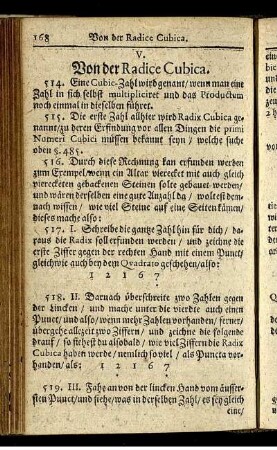 168 Von der Radice Cubica.
V.
Von der Radice Cubica.
514. Eine Cubic-Zahl wird genant/ wenn man eine
Zahl in sich selbst multipliciret und das Productum
noch einmal in dieselben führet.
515. Die erste Zahl allhier wird Radix Cubica ge-
nannt/ zu deren Erfindung vor allen Dingen die primi
Numeri Cubici müssen bekannt seyn/ welche suche
oben §. 485.
516. Durch diese Rechnung kan erfunden werden
zum Exempel/ wenn ein Altar vierecket mit auch gleich
viereckten gebackenen Steinen solte gebauet werden/
und wären derselben eine gute Anzahl da/ woltest den-
nach wissen/ wie viel Steine auf eine Seiten kämen/
dieses mache also:
517. I. Schreibe die gantze Zahl hin für dich/ da-
raus die Radix soll erfunden werden/ und zeichne die
erste Ziffer gegen der rechten Hand mit einem Punct/
gleichwie auch bey dem Quadrato geschehen/ also:
1 2 1 6 7
518. II. Darnach überschreite zwo Zahlen gegen
der Lincken/ und mache unter die vierdte auch einen
Punct/ und also/ wenn mehr Zahlen vorhanden/ ferner/
übergehe allezeit zwo Ziffern/ und zeichne die folgende
drauf/ so siehest du alsobald/ wie viel Ziffern die Radix
Cubica haben werde/ nemlich so viel/ als Puncta vor-
handen/ als: 1 2 1 6 7
519. III. Fahe an von der lincken Hand vom äusser-
sten Punct/ und siehe/ was in derselben Zahl/ es sey gleich
eine/